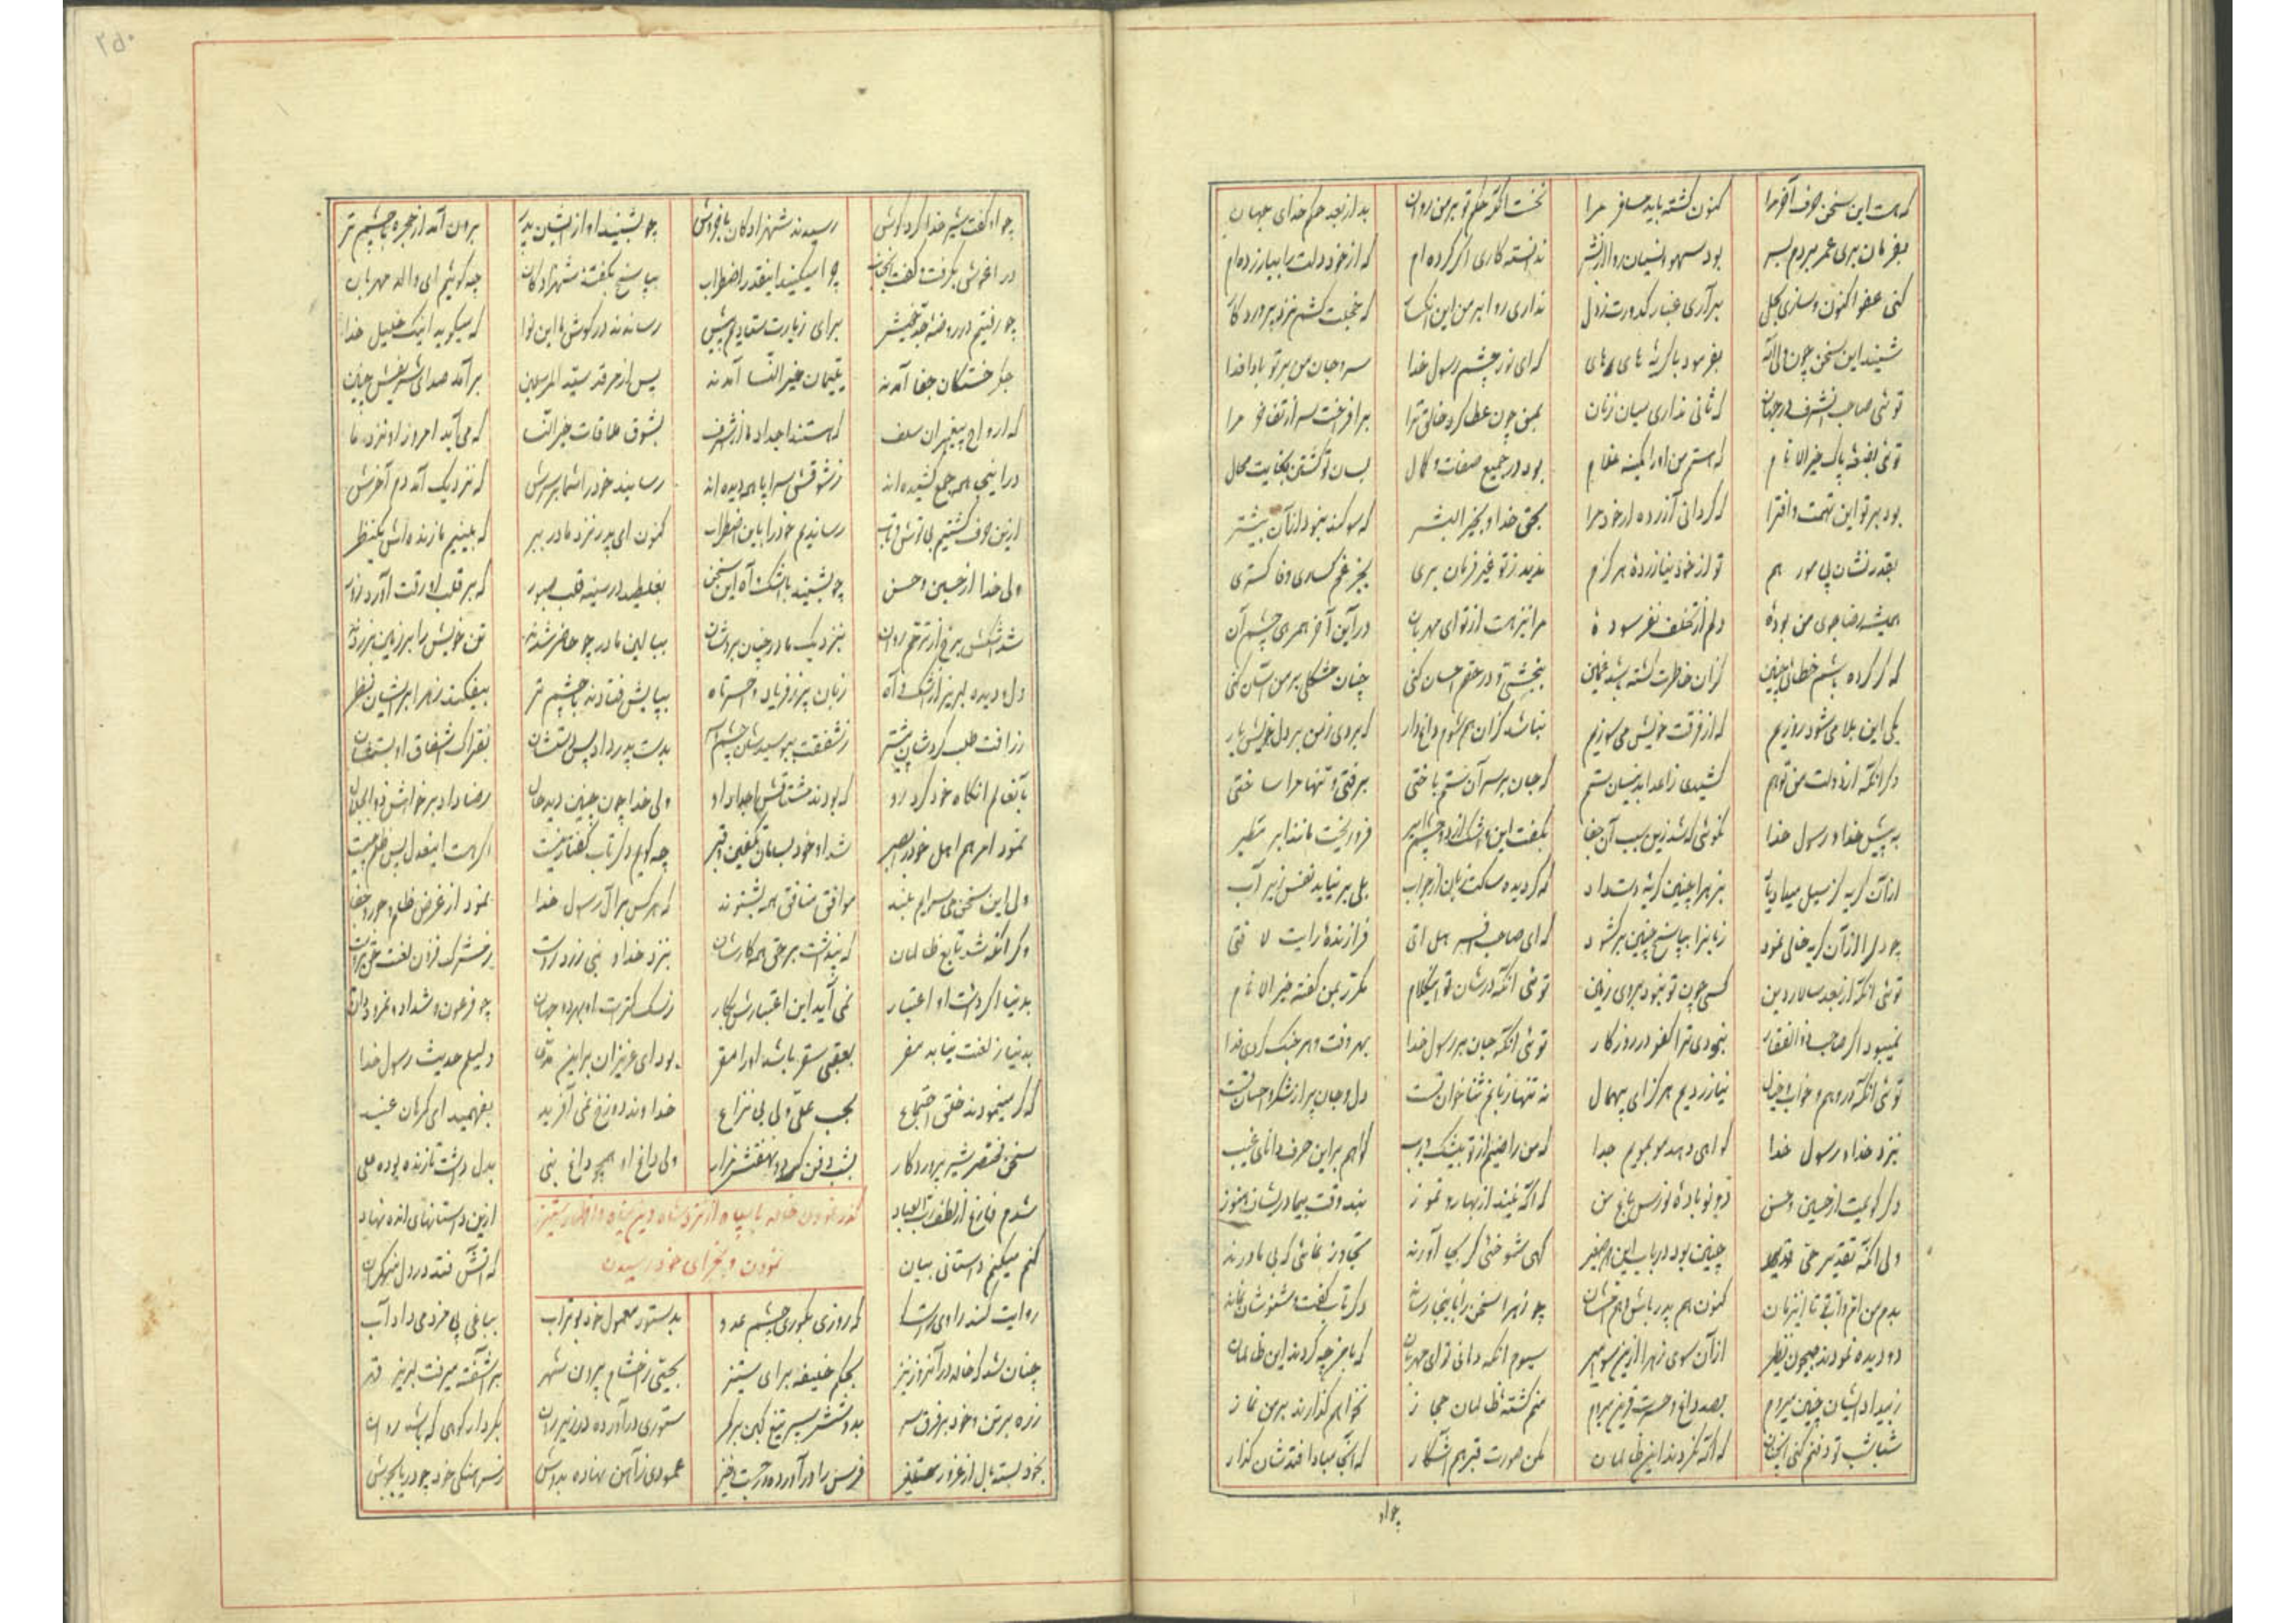 که هست این سخن حرف آخر مرا کنون گشته باید مسافر مرا نخست آنکه حکم تو بر من روان بد از بعد حکم خدای جهان
بفرمان بری عمر بردم بسر بود سهو و نسیان روا از بشر ندانسته کاری اگر کرده‌ام که از خود دلت را بیازرده‌ام
کنی عفو اکنون و سازی بحل برآری غبار کدورت ز دل نداری روا بر من این که خجلت کشم نزد پروردگار
شنید این سخن چون ولی اله بفرمود با گریه های های که ای نور چشم رسول خدا سر و جان من بر تو بادا فدا
توئی صاحب شرف در جهان که ثانی نداری میان زنان بمن چون عطا کرد خالق ترا برافراخت سر از تفاخر مرا
توئی بضعه پاک خیر الانام که هستم من او را کمینه غلام بود در جمیع صفات و کمال بسان تو گشتن بغایت محال
بود بر تو این تهمت و افترا که گردانی آزرده از خود مرا بحق خدا و بخیر البشر که سوگند نبود از آن بیشتر
بقدر نشان پی مور هم تو از خود نیازرده هرگزم ندیدم ز تو غیر فرمان بری بجز غمگساری و خاکستری
همیشه رضاجوی من بوده دلم از تخلف نفرسوده مرا نیز هست از تو ای مهربان در این آخر همرهی چشم آن
که گر کرده باشم خطائی چنین کز آن خاطرت گشته باشد غمین ببخشی و در حقم احسان کنی چنان مشکلی بر من آسان کنی
یکی این بلا می‌شود روزیم که از فرقت خویش می‌سوزیم نباشد گران هم شوم داغ‌دار که بردی ز من بر دل خویش بار
دگر آنکه از دولت من توهم کشیدی ز اعدا بدینسان ستم که جان بر سر آن ستم باختی برفتی و تنها مرا ساختی
به پیش خدا و رسول خدا نگوئی که شد زین سبب آن جفا بگفت این و اشک از دو چشم فرو ریخت مانند ابر مطیر
از آن گریه کز سیل میداد یاد بزهرا چنین گریه دست داد که گردیده ساکت زبان از جواب بلی بر نیاید نفس زیر آب
چو دل را از آن گریه خالی نمود زبان را بپاسخ چنین برگشود که ای صاحب افسر هل اتی فرازنده رایت لا فتی
توئی آنکه از بعد سالار دین کسی چون تو نبود بروی زمین توئی آنکه در شان تو این کلام مکرر بمن گفته خیر الانام
نمیبود اگر صاحب ذوالفقار نبودی ترا کفو در روزگار توئی آنکه جان بر رسول خدا بهر وقت و هر جنگ کردی فدا
توئی آنکه در وهم و خواب و خیال نیازردیم هرگز ای بیهمال نه تنها زبانم ثناخوان تست دل و جان پر از شکر و احسان تست
بنزد خدا و رسول خدا گواهی دهد مو بمویم جدا که من راضیم از تو بیشک و ریب گواهم بر این حرف دانای غیب
دگر گویمت از حسین و حسن دو نوباوهٔ نورس باغ من که آگه نیند از بهار و تموز بند وقت بیمادریشان هنوز
ولی آنکه تقدیر حق قدیر چنین بود در باب این دو صغیر گهی شوخئی گر بجا آورند تجاوز نمائی که بی مادرند
بدم من انیس تا این زمان کنون هم پدر باش و هم چو زهرا سخن را باینجا رساند دگر تاب گفت و شنودش نماند
دو دیده نمودند همچون نظر از آن سوی زهرا از این سو امیر سیوم آنکه دانی تو ای مهربان که با من چه کردند این ظالمان
ز بیداد ایشان چنین میروم بصد داغ و حسرت قرین میروم منم کشته ظالمان حجاز نخواهم گذارند بر من نماز
شباشب تو دفنم کنی آنچنان که آگه نگردند این ظالمان مکن صورت قبرم آشکار که آنجا مبادا فتدشان گذار
چو او
۲۵۰
چو او گفت شیر خدا کرد گوش رسیدند شهزادگان با خروش چو بشنید آواز ایشان پدر برون آمد از حجره با چشم تر
در آغوش بگرفت و گفت چرا میکنید اینقدر اضطراب بپاسخ بگفتند شهزادگان چه گوئیم ای والد مهربان
چو رفتیم در روضه جد خویش برای زیارت ستادیم پیش رساندند در گوش ما این نوا که میگوید اینک خلیل خدا
جگر خستگان جفا آمدند یتیمان خیر النسا آمدند پس از مرقد سید المرسلین برآمد صدای شریفش چنین
که ارواح پیغمبران سلف که هستند اجداد ما از شرف بشوق ملاقات خیر النسا که می‌آید امروز او نزد ما
در اینجا همه جمع گشته‌اند ز شوقش سراپا همه دیده‌اند رسانید خود را شما بر سرش که نزدیک آمد دم آخرش
از این حرف گشتیم بی توش و تاب رساندیم خود را باین اضطراب کنون ای پدر نزد مادر ببر که بینیم تا زنده‌اش یکنظر
ولی خدا از حسین و حسن چو بشنید با اشک و آه این سخن بغلطید در سینه قلب صبور که بر قلب او رقت آورد زور
شد اشکش برخ از ترحم روان بنزدیک مادر چنان بردشان ببالین مادر چو حاضر شدند تن خویش را بر زمین بر زدند
دل و دیده لبریز از اشک و آه زبان پر ز فریاد و احسرتاه بپایش فتادند با چشم تر بیفکند زهرا بر ایشان نظر
ز رافت طلب کردشان پیشتر ز شفقت ببوسیدشان چشم و سر بدست پدر داد پس دستشان بفتراک اشفاق او بستشان
بآنعالم آنگاه خود کرد رو که بودند مشتاقش اجداد او ولی خدا چون چنین دید حال رضا داد بر خواهش ذو الجلال
نمود امر هم اهل خود را بصبر شد او خود بسامان تکفین و قبر چه گویم دگر تاب گفتار نیست اگر هست اینقدل پس ظلم چیست
ولی این سخن می‌سرایم بلند موافق منافق همه بشنوند که هر کس بر آل رسول خدا نمود از غرض ظلم و جور و جفا
وگر آنکه شد تابع ظالمان که پنداشت بر حق همه کارشان بنزد خدا و نبی زرد روست ز مشرک فزون لعنت حق بروست
بدنیا اگر داشت او اعتبار نمی‌آید این اعتبارش بکار ز سگ کمتر است او بهر دو جهان چو فرعون و شداد و نمرود دان
بدنیا ز لعنت نیابد مفر بعقبی سقر باشد او را مقر بود ای عزیزان بر این مدعا دلیلم حدیث رسول خدا
که گر مینمودند خلق اجتماع بحب علی ولی بی نزاع خداوند دوزخ نمی‌آفرید بفهمید ای گمرهان عنید
سخن مختصر شیر پروردگار بشب دفن کرد و نهفتش مزار ولی داغ او همچو داغ نبی بدل داشت تا زنده بوده علی
شدم فارغ از لطف رب العباد ازین داستانهای انده نهاد
گذر نمودن خالد با سپاه از نزد شاه دین پناه و اظهار ستیز نمودن و بجزای خود رسیدن
کنم میکنم داستانی بیان که آتش فتد در دل منکران
روایت کند راوی که روزی بکوری چشم عدو بدستور معمول خود بوتراب بباغی پی مزد می‌داد آب
چنان شد که خالد در آنروز نیز بحکم خلیفه برای ستیز بجیشی ز اشام برون شهر بر آشفته میرفت لبریز قهر
زره بر تن و خود بر فرق سر بدوشش سپر تیغ کین بر کمر ستوری درآورده در زیر ران بکردار کوهی که باشد روان
بخود بسته بال از غرور فرس را درآورده در جست و خیز عمودی ز آهن نهاده بدوش ز سرهنگی خود چو دریا بجوش